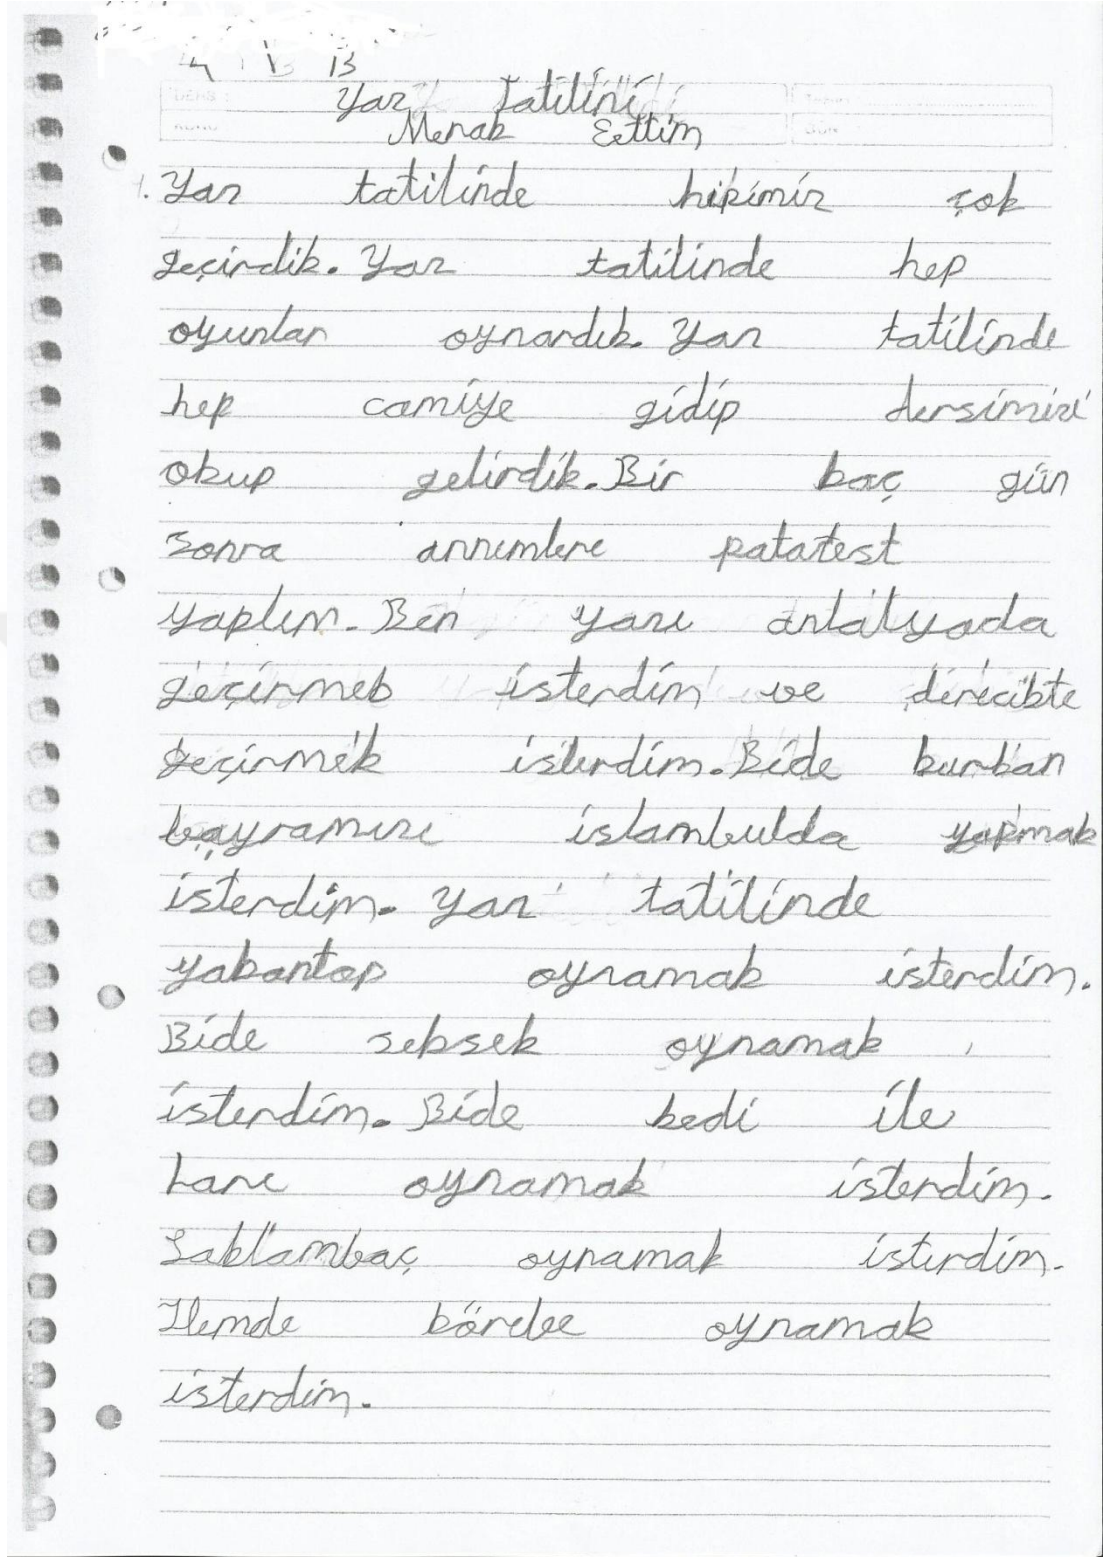 Yaz Tatilini
Merak Eettim
1. Yaz tatilinde hipimiz çok
geçirdik. Yaz tatilinde hep
oyunlar oynardık. Yaz tatilinde
hep camiye gidip dersimizi
okup gelirdik. Bir kaç gün
sonra annemlere patatest
yaptım. Ben yazı antalyada
geçirmek isterdim ve direcikte
geçirmek isterdim. Bide kurban
bayramızı islambulda yapmak
isterdim. Yaz tatilinde
yakantop oynamak isterdim.
Bide seksek oynamak
isterdim. Bide kedi ile
fare oynamak isterdim.
Saklambaç oynamak isterdim.
Hemde körebe oynamak
isterdim.